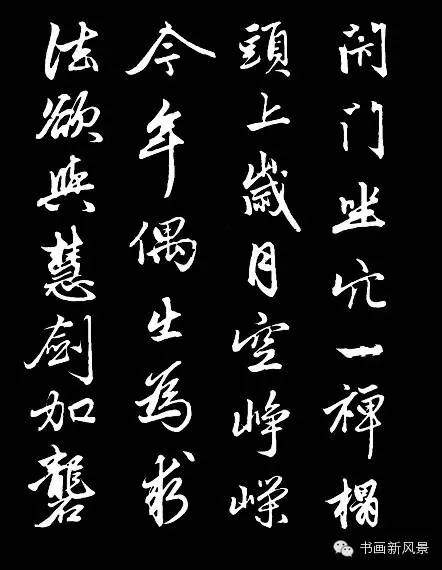 閉門坐穴一禪榻
頭上歲月空崢嶸
今年偶出為求
法欲與慧劍加礱
书画新风景